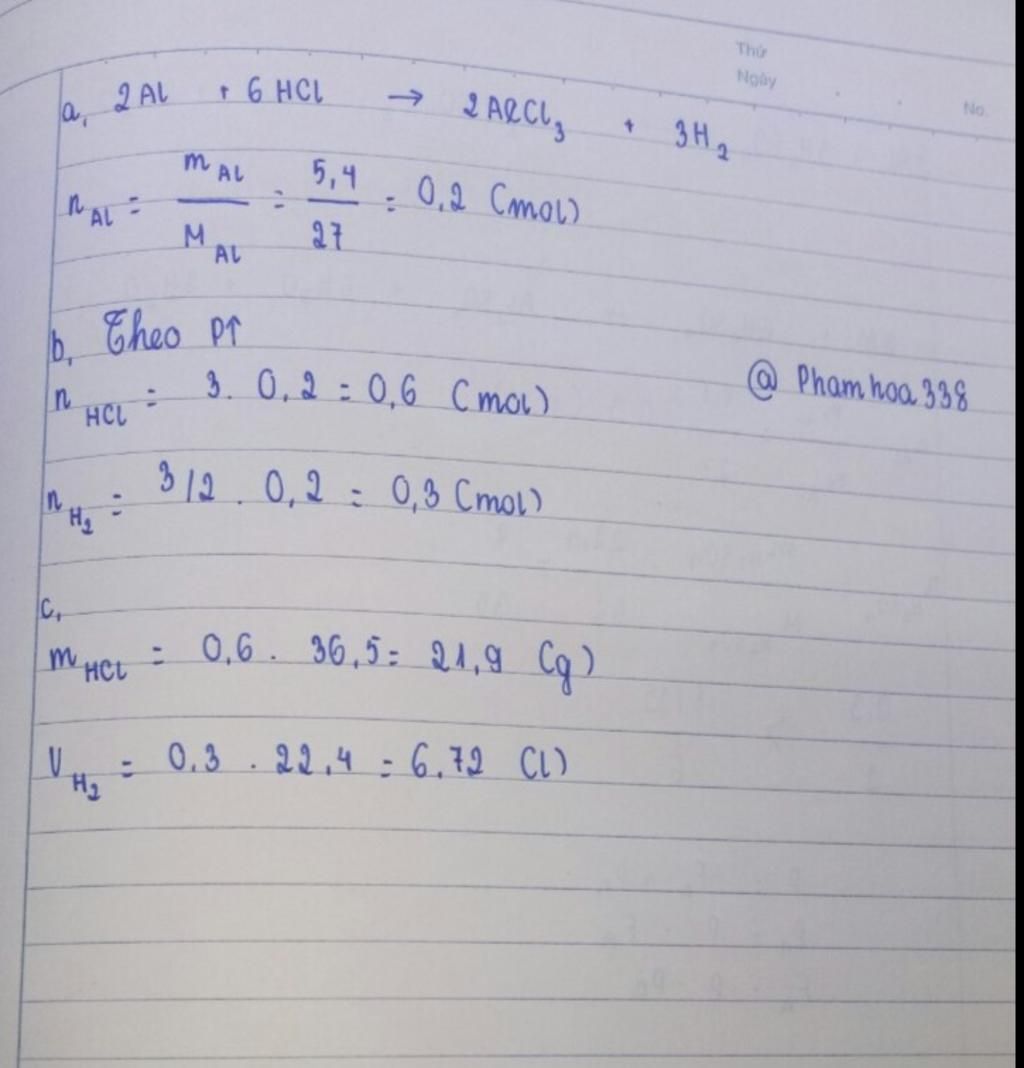 Thứ
Ngày
No.
a, 2Al + 6 HCl → 2AlCl₃ + 3H₂
n_Al = m_Al / M_Al = 5,4 / 27 = 0,2 (mol)
b, Theo PT
n_HCl = 3. 0,2 = 0,6 (mol)
@ Phamhoa338
n_H₂ = 3/2 . 0,2 = 0,3 (mol)
c,
m_HCl = 0,6 . 36,5 = 21,9 (g)
V_H₂ = 0.3 . 22,4 = 6.72 (l)